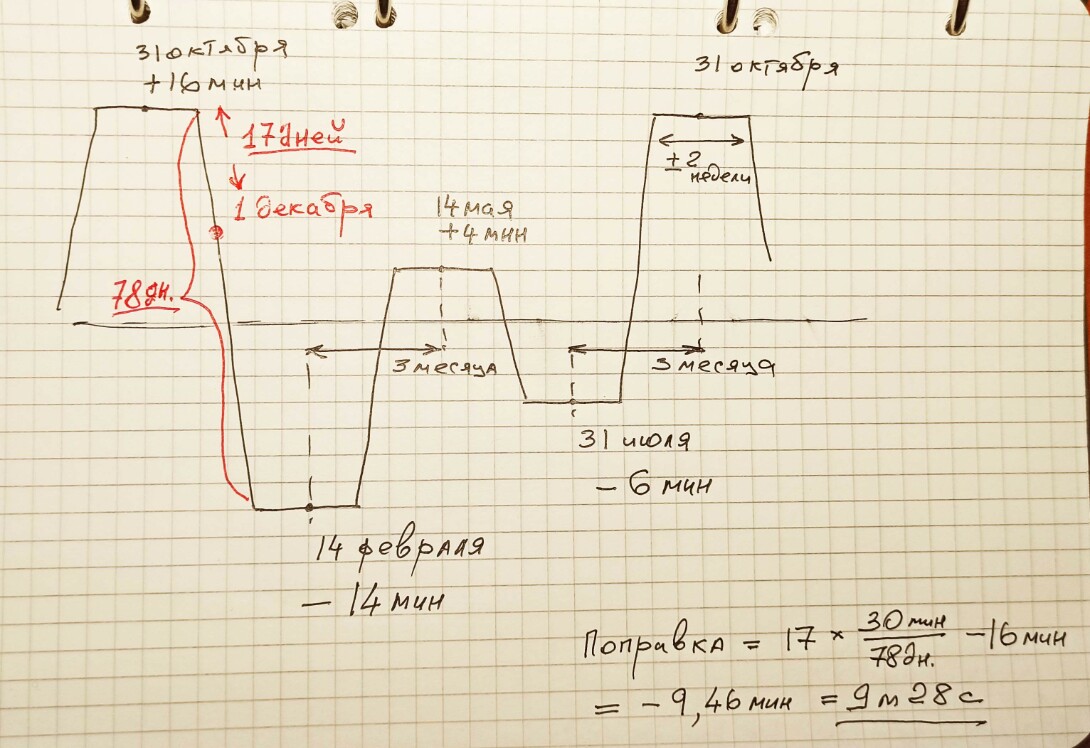 31 октября
+16 мин
31 октября
17 дней
± 2
недели
1 декабря
14 мая
+4 мин
78 дн.
3 месяца
3 месяца
31 июля
- 6 мин
14 февраля
- 14 мин
Поправка = 17 × 30 мин / 78 дн. - 16 мин
= - 9,46 мин = 9 м 28 с